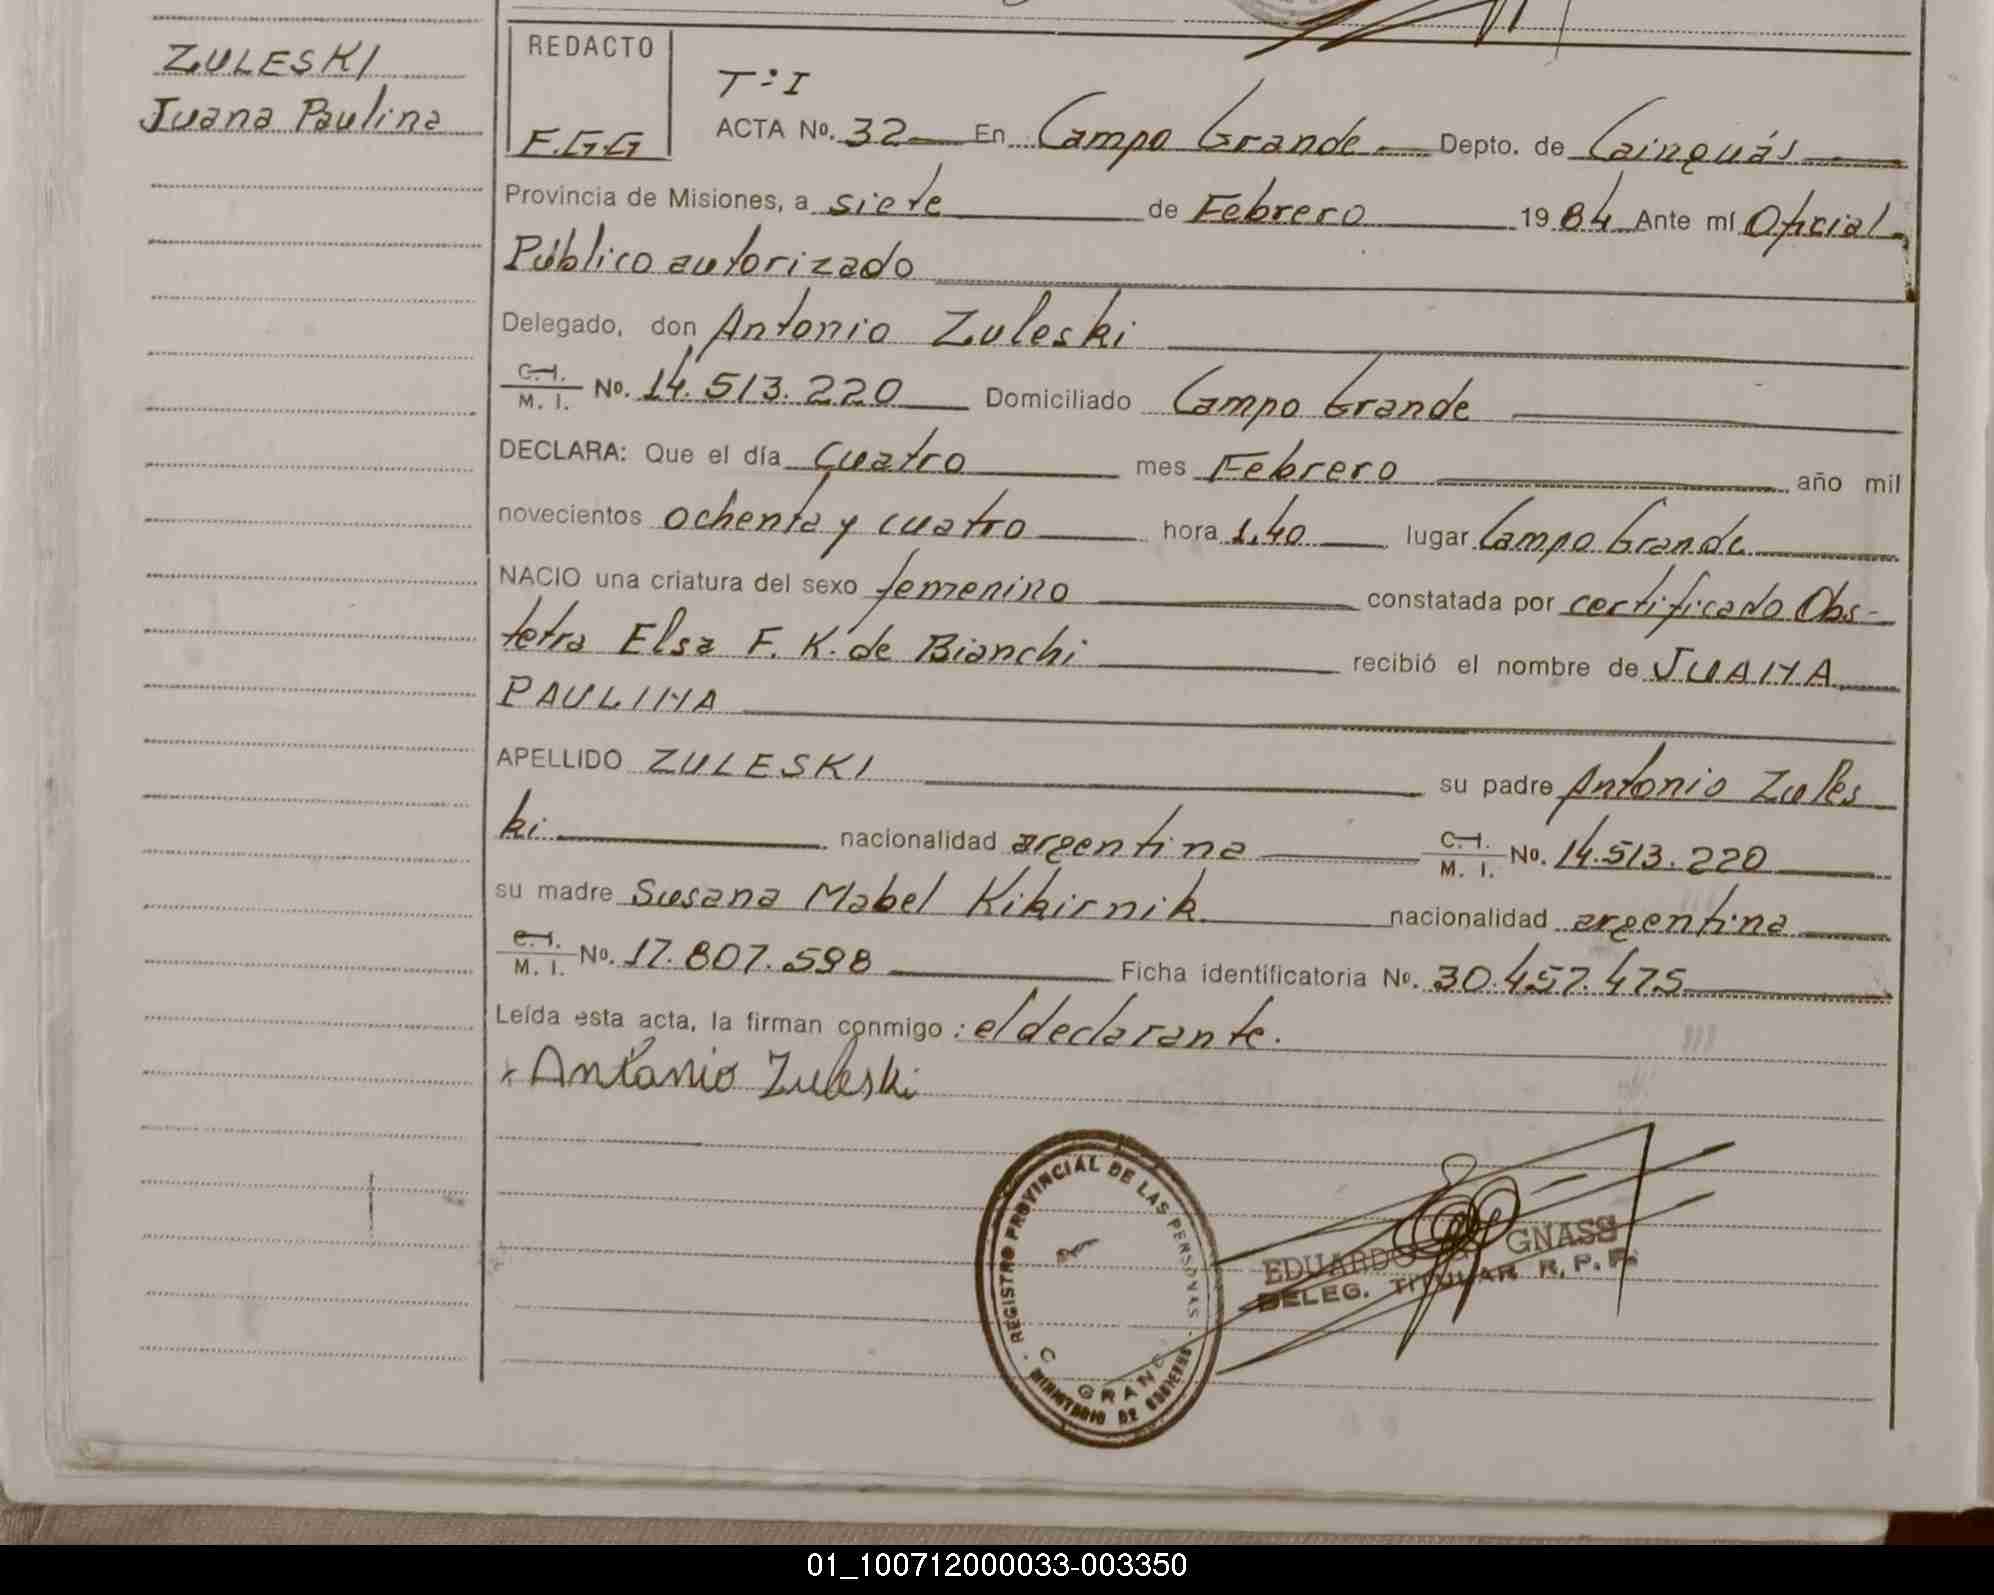 ZULESKI
Juana Paulina
REDACTO
F.G.G
T:I
ACTA No. 32 En Campo Grande Depto. de Cainguás
Provincia de Misiones, a siete de Febrero 1984 Ante mí Oficial
Público autorizado
Delegado, don Antonio Zuleski
C.I. M. I. No. 14.513.220 Domiciliado Campo Grande
DECLARA: Que el día cuatro mes Febrero año mil
novecientos ochenta y cuatro hora 1,40 lugar Campo Grande
NACIO una criatura del sexo femenino constatada por certificado Obs-
tetra Elsa F. K. de Bianchi recibió el nombre de JUANA
PAULINA
APELLIDO ZULESKI su padre Antonio Zules
ki nacionalidad argentina C.I. M. I. No. 14.513.220
su madre Susana Mabel Kikirnik nacionalidad argentina
C.I. M. I. No. 17.807.598 Ficha identificatoria No. 30.457.475
Leída esta acta, la firman conmigo: el declarante.
x Antonio Zuleski
REGISTRO PROVINCIAL DE LAS PERSONAS
MINISTERIO DE GOBIERNO
EDUARDO GNASS
DELEG. TITULAR R. P. P.
01_100712000033-003350